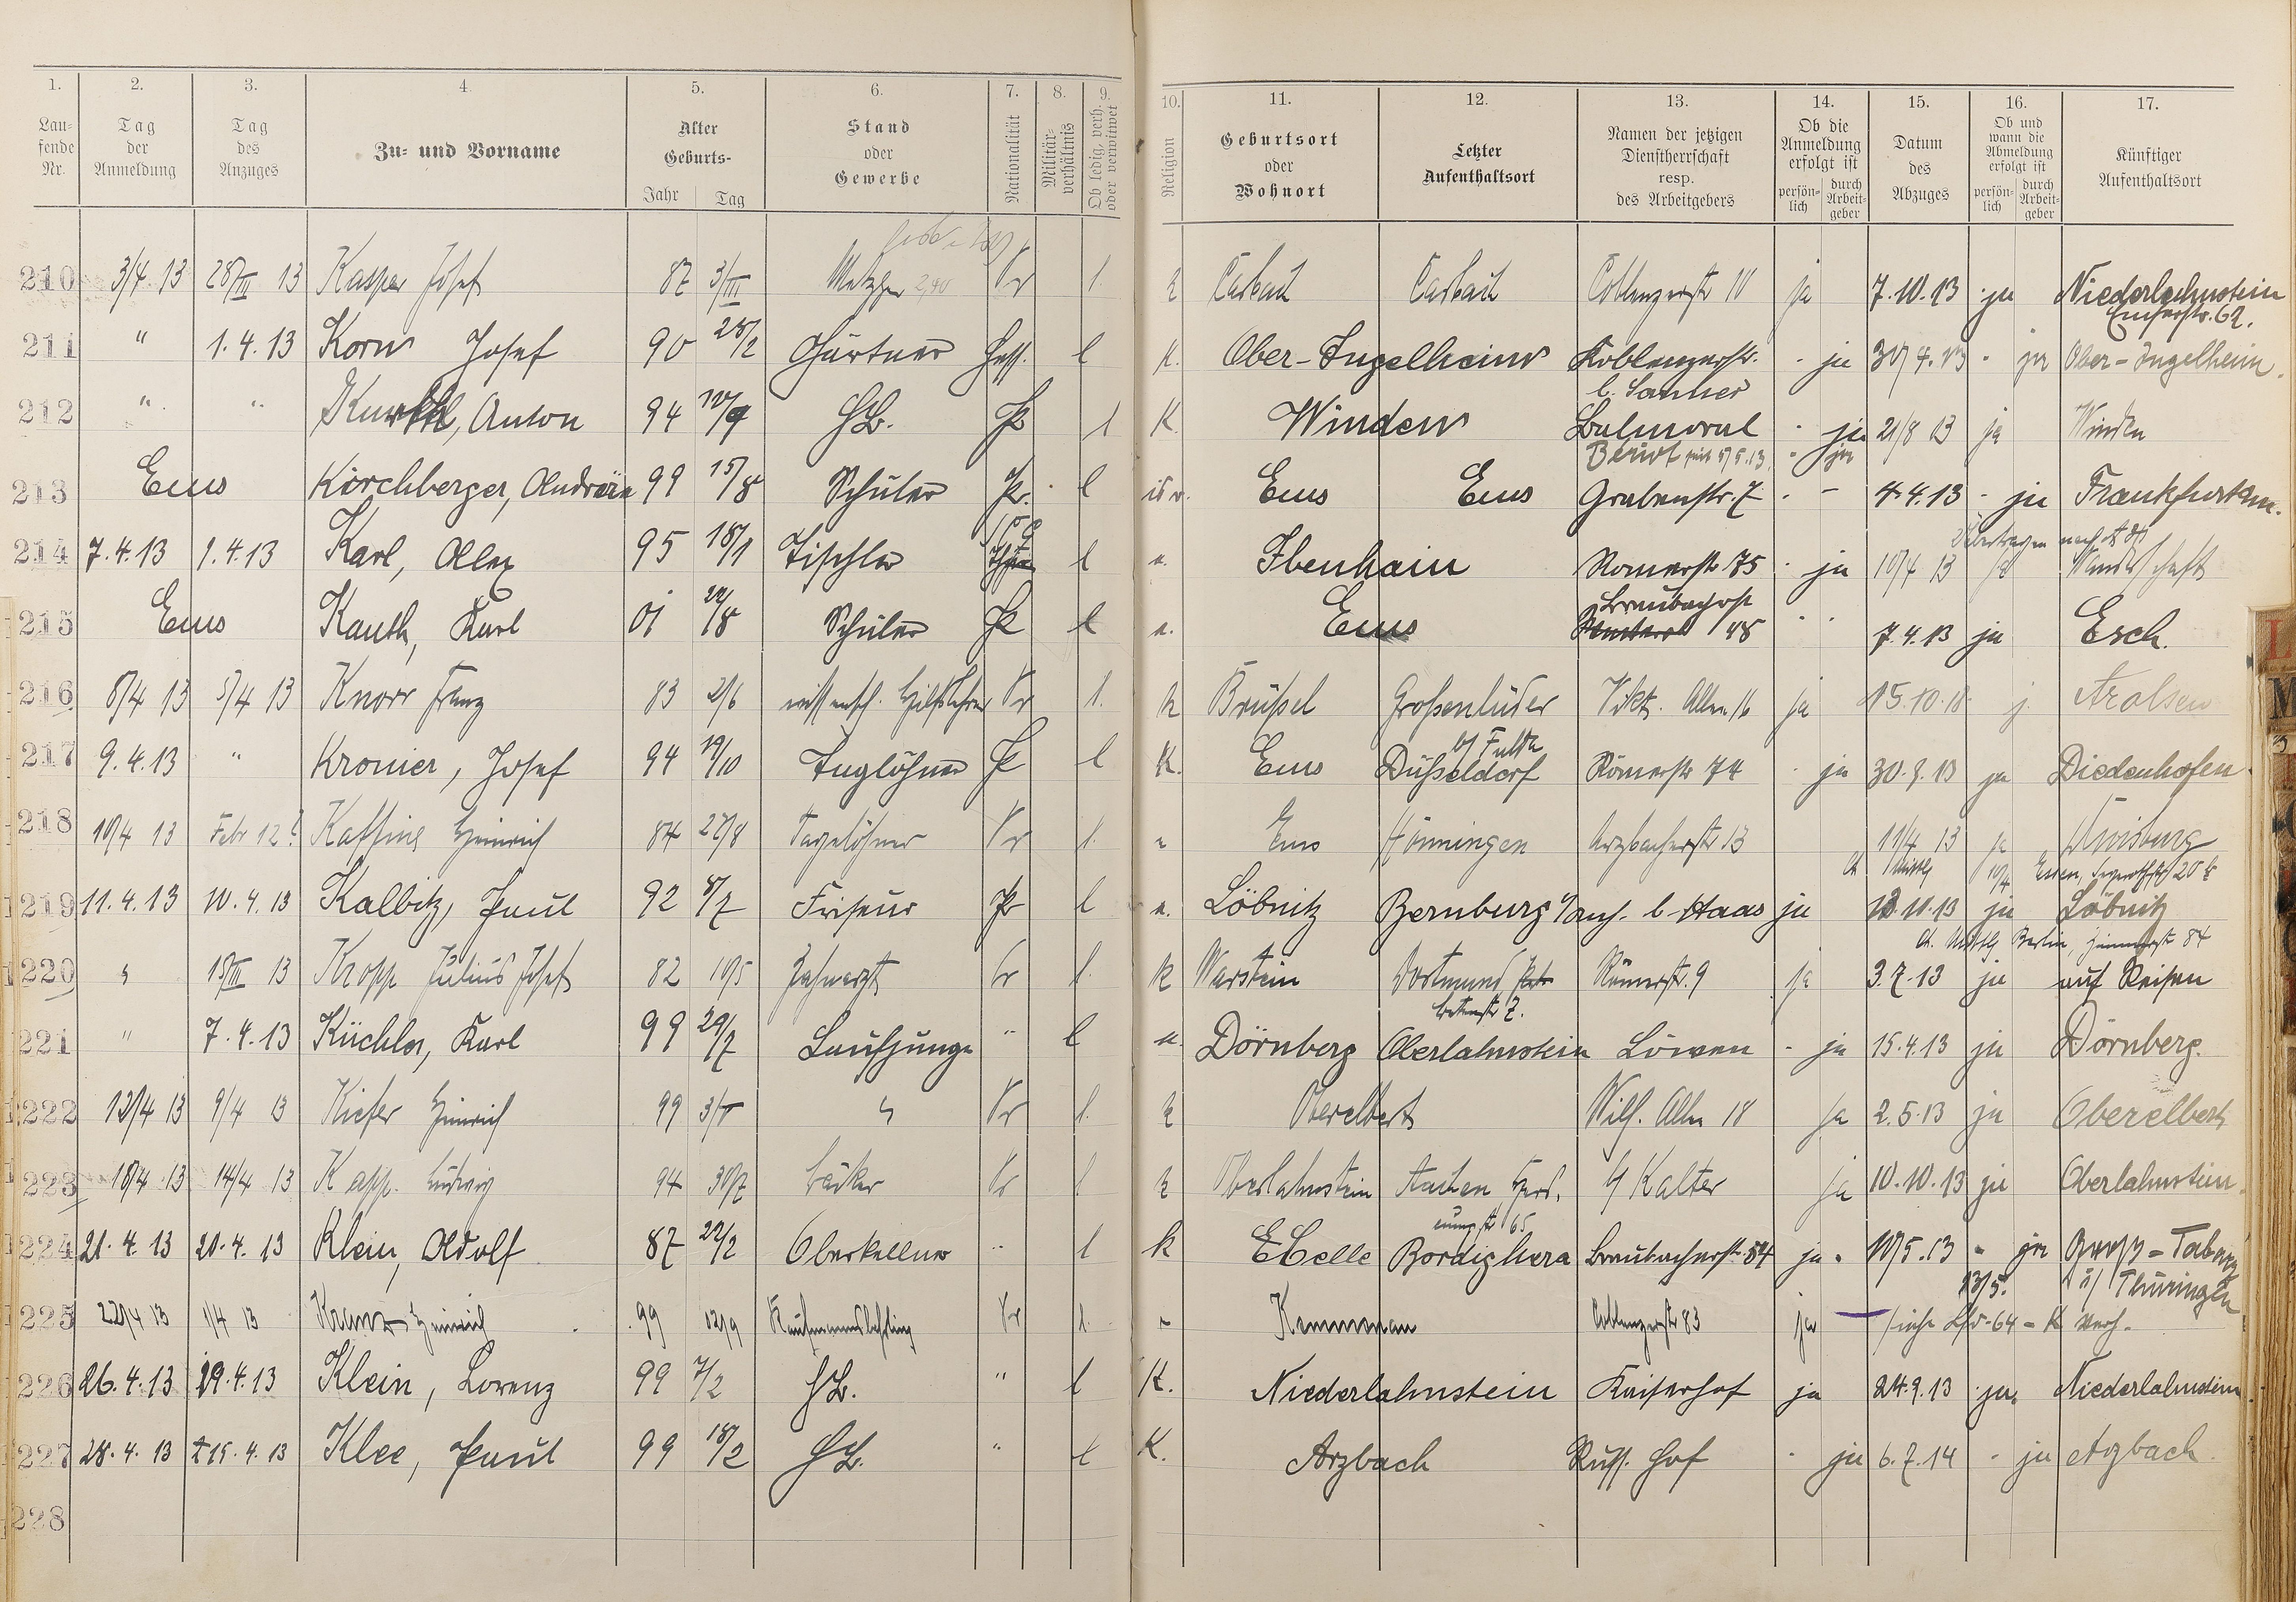 1. 2. 3. 4. 5. 6. 7. 8. 9. 10. 11. 12. 13. 14. 15. 16. 17.
Lau-fende Nr. Tag der Anmeldung Tag des Anzuges Zu- und Vorname Alter Geburts- Jahr Tag Stand oder Gewerbe Nationalität Militär-verhältnis Ob ledig, verh. oder verwitwet Religion Geburtsort oder Wohnort Letzter Aufenthaltsort Namen der jetzigen Dienstherrschaft resp. des Arbeitgebers Ob die Anmeldung erfolgt ist persön-lich durch Arbeit-geber Datum des Abzuges Ob und wann die Abmeldung erfolgt ist persön-lich durch Arbeit-geber Künftiger Aufenthaltsort
210 3/4 13 28/III 13 Kasper Josef 87 3/III Metzger 2,40 Pr l. k Coblenzerstr 10 ja 7.10.13 ja Niederlahnstein
Emserstr. 62.
211 " 1.4.13 Korn Josef 90 28/2 Gärtner Hess. l K. Ober-Ingelheim Koblenzerstr. - ja 30/4.13 - ja Ober-Ingelheim.
b. Sanner
212 " " Anton 94 10/9 HB. Pr l K. Winden Balmoral - ja 21/8 13 ja Winden
seit 5/5.13. - ja
213 Ems Kirchberger, 99 15/8 Schüler Pr. l isr. Ems Ems Grabenstr. 7 - - 4.4.13 - ja Frankfurt a/m.
214 7.4.13 1.4.13 Karl, Alex 95 18/1 Tischler l e. Ibenhain Römerstr 75 - ja 10/4 13 ja
Braubachstr
215 Ems Kauth, Karl 01 22/8 Schüler Pr l e. Ems 48 7.4.13 ja Esch.
216 8/4 13 5/4 13 Knorr Franz 83 2/6 wissensch. Hilfslehrer Pr l. k Brüssel Großenlüder Vikt. Allee 16 ja 15.10.18 j. Arolsen
b/ Fulda
217 9.4.13 " Kronier, Josef 94 19/10 Taglöhner Pr l K. Ems Düsseldorf Römerstr 74 - ja 30.9.13 ja Diedenhofen.
218 10/4 13 Febr 12? Heinrich 84 27/8 Tagelöhner Pr l. e Ems Hönningen Arzbacherstr 13 11/4 13 ja Duisburg
219 11.4.13 10.4.13 Kalbitz, Paul 92 8/7 Friseur Pr l e. Löbnitz Bernburg b. Haas ja 12.10.13 ja Löbnitz
220 " 15/III 13 Kropp Julius Josef 82 10/5 Zahnarzt Pr l. k Warstein Dortmund Römerstr. 9 ja 3.7.13 ja auf Reisen
221 " 7.4.13 Küchler, Karl 99 29/7 Laufjunge " l e. Dörnberg Oberlahnstein Löwen - ja 15.4.13 ja Dörnberg.
222 12/4 13 9/4 13 Kiefer Heinrich 99 3/I " Pr l. k Oberelbert Wilh. Allee 18 ja 2.5.13 ja Oberelbert
223 18/4 13 14/4 13 Kapp. Ludwig 94 30/7 Bäcker Pr l k Oberlahnstein Aachen b/ Kalter ja 10.10.13 ja Oberlahnstein.
224 21.4.13 20.4.13 Klein, Adolf 87 22/2 Oberkellner " l k Bordighera Braubacherstr. 54 ja - 10/5.13 - ja Gross-Tabarz
13/5. i/ Thüringen
225 22/4 13 1/4 13 Kranz Heinrich 99 12/9 Kaufmannslehrling Pr l. e Kemmenau Coblenzerstr 83 ja
226 26.4.13 19.4.13 Klein, Lorenz 99 7/2 HB. " l K. Niederlahnstein Kaiserhof ja 24.9.13 ja. Niederlahnstein
227 28.4.13 15.4.13 Klee, Paul 99 18/2 HB. " l K. Arzbach Russ. Hof - ja 6.7.14 - ja Arzbach.
228